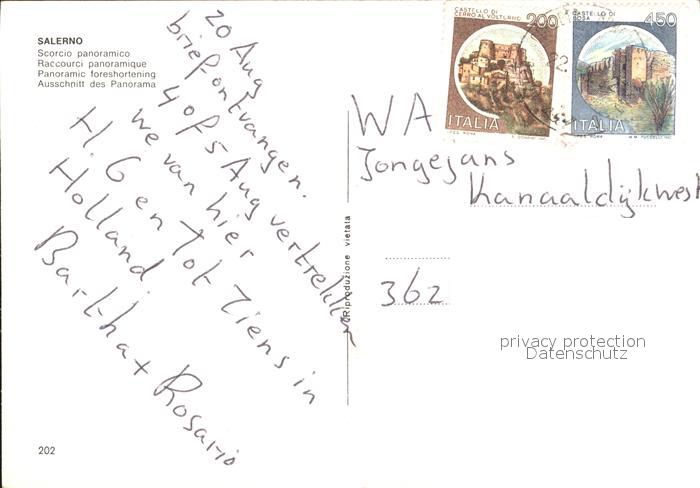 SALERNO
Scorcio panoramico
Raccourci panoramique
Panoramic foreshortening
Ausschnitt des Panorama
20 Aug
brief ontvangen.
4 of 5 Aug vertrekken
we van hier
H. G en Tot Ziens in
Holland.
Barkhat Rosario
202
Riproduzione vietata
CASTELLO DI
CERRO AL VOLTURNO
200
ITALIA
CASTELLO DI
BOSA
450
ITALIA
22.
WA
Jongejans
Kanaaldijkwest
362
privacy protection
Datenschutz